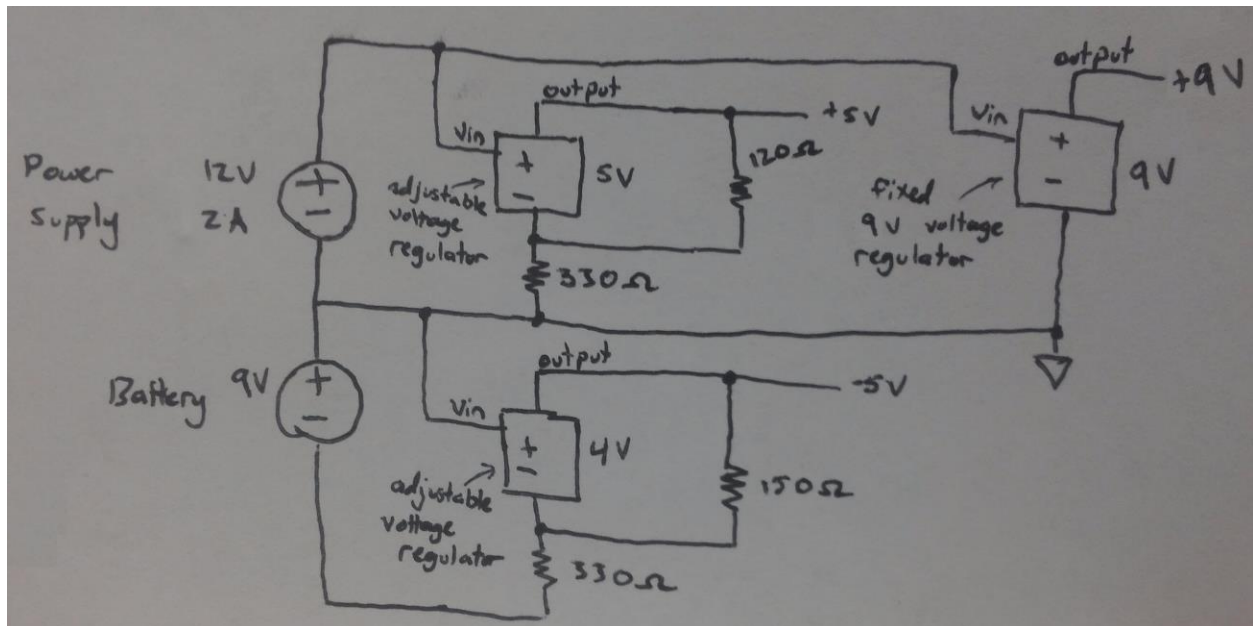 Power
Supply
12V
2A
+
−
Vin
output
+
−
5V
adjustable
voltage
regulator
+5V
120Ω
330Ω
Vin
output
+
−
9V
+9V
fixed
9V voltage
regulator
Battery
9V
+
−
Vin
output
+
−
4V
adjustable
voltage
regulator
-5V
150Ω
330Ω